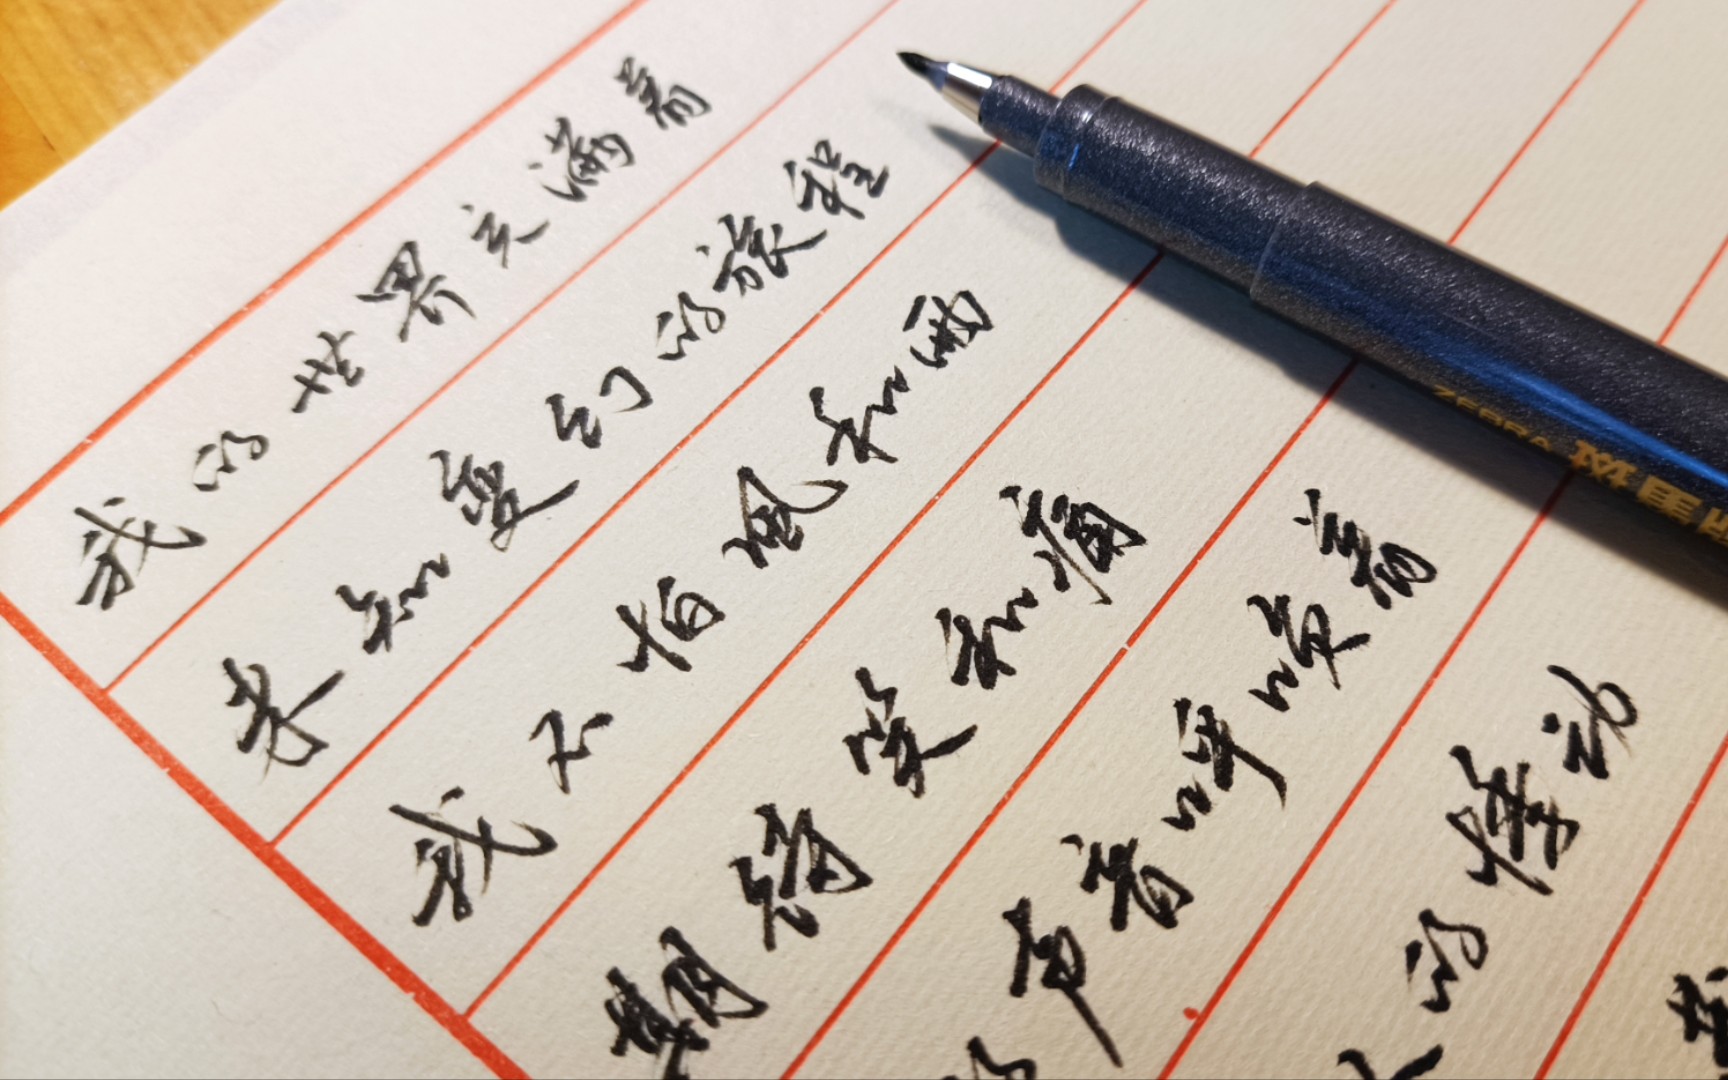 我的世界充满着
未知变幻的旅程
我不怕风和雨
期待笑和痛
的声音呼唤着
的悸动
ZEBRA 斑马牌